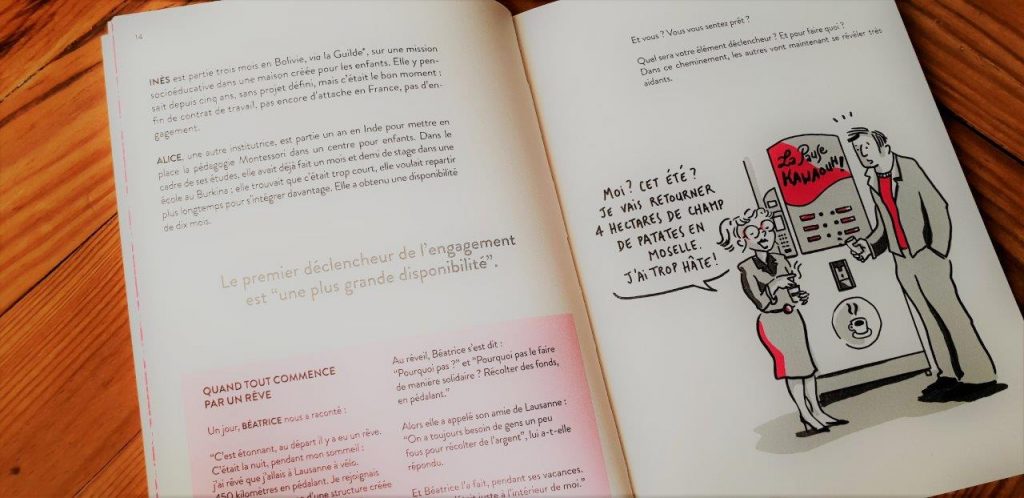 14
INÈS est partie trois mois en Bolivie, via la Guilde*, sur une mission
socioéducative dans une maison créée pour les enfants. Elle y pen-
sait depuis cinq ans, sans projet défini, mais c'était le bon moment :
fin de contrat de travail, pas encore d'attache en France, pas d'en-
gagement.
ALICE, une autre institutrice, est partie un an en Inde pour mettre en
place la pédagogie Montessori dans un centre pour enfants. Dans le
cadre de ses études, elle avait déjà fait un mois et demi de stage dans une
école au Burkina ; elle trouvait que c'était trop court, elle voulait repartir
plus longtemps pour s'intégrer davantage. Elle a obtenu une disponibilité
de dix mois.
Le premier déclencheur de l'engagement
est "une plus grande disponibilité".
QUAND TOUT COMMENCE
PAR UN RÊVE
Un jour, BÉATRICE nous a raconté :
"C'est étonnant, au départ il y a eu un rêve.
C'était la nuit, pendant mon sommeil :
j'ai rêvé que j'allais à Lausanne à vélo,
450 kilomètres en pédalant. Je rejoignais
d'une structure créée
Au réveil, Béatrice s'est dit :
"Pourquoi pas ?" et "Pourquoi pas le faire
de manière solidaire ? Récolter des fonds,
en pédalant."
Alors elle a appelé son amie de Lausanne :
"On a toujours besoin de gens un peu
fous pour récolter de l'argent", lui a-t-elle
répondu.
Et Béatrice l'a fait, pendant ses vacances.
juste à l'intérieur de moi."
Et vous ? Vous vous sentez prêt ?
Quel sera votre élément déclencheur ? Et pour faire quoi ?
Dans ce cheminement, les autres vont maintenant se révéler très
aidants.
La Pause
KAWAOUH!
MOI ? CET ÉTÉ ?
JE VAIS RETOURNER
4 HECTARES DE CHAMP
DE PATATES EN
MOSELLE.
J'AI TROP HÂTE !